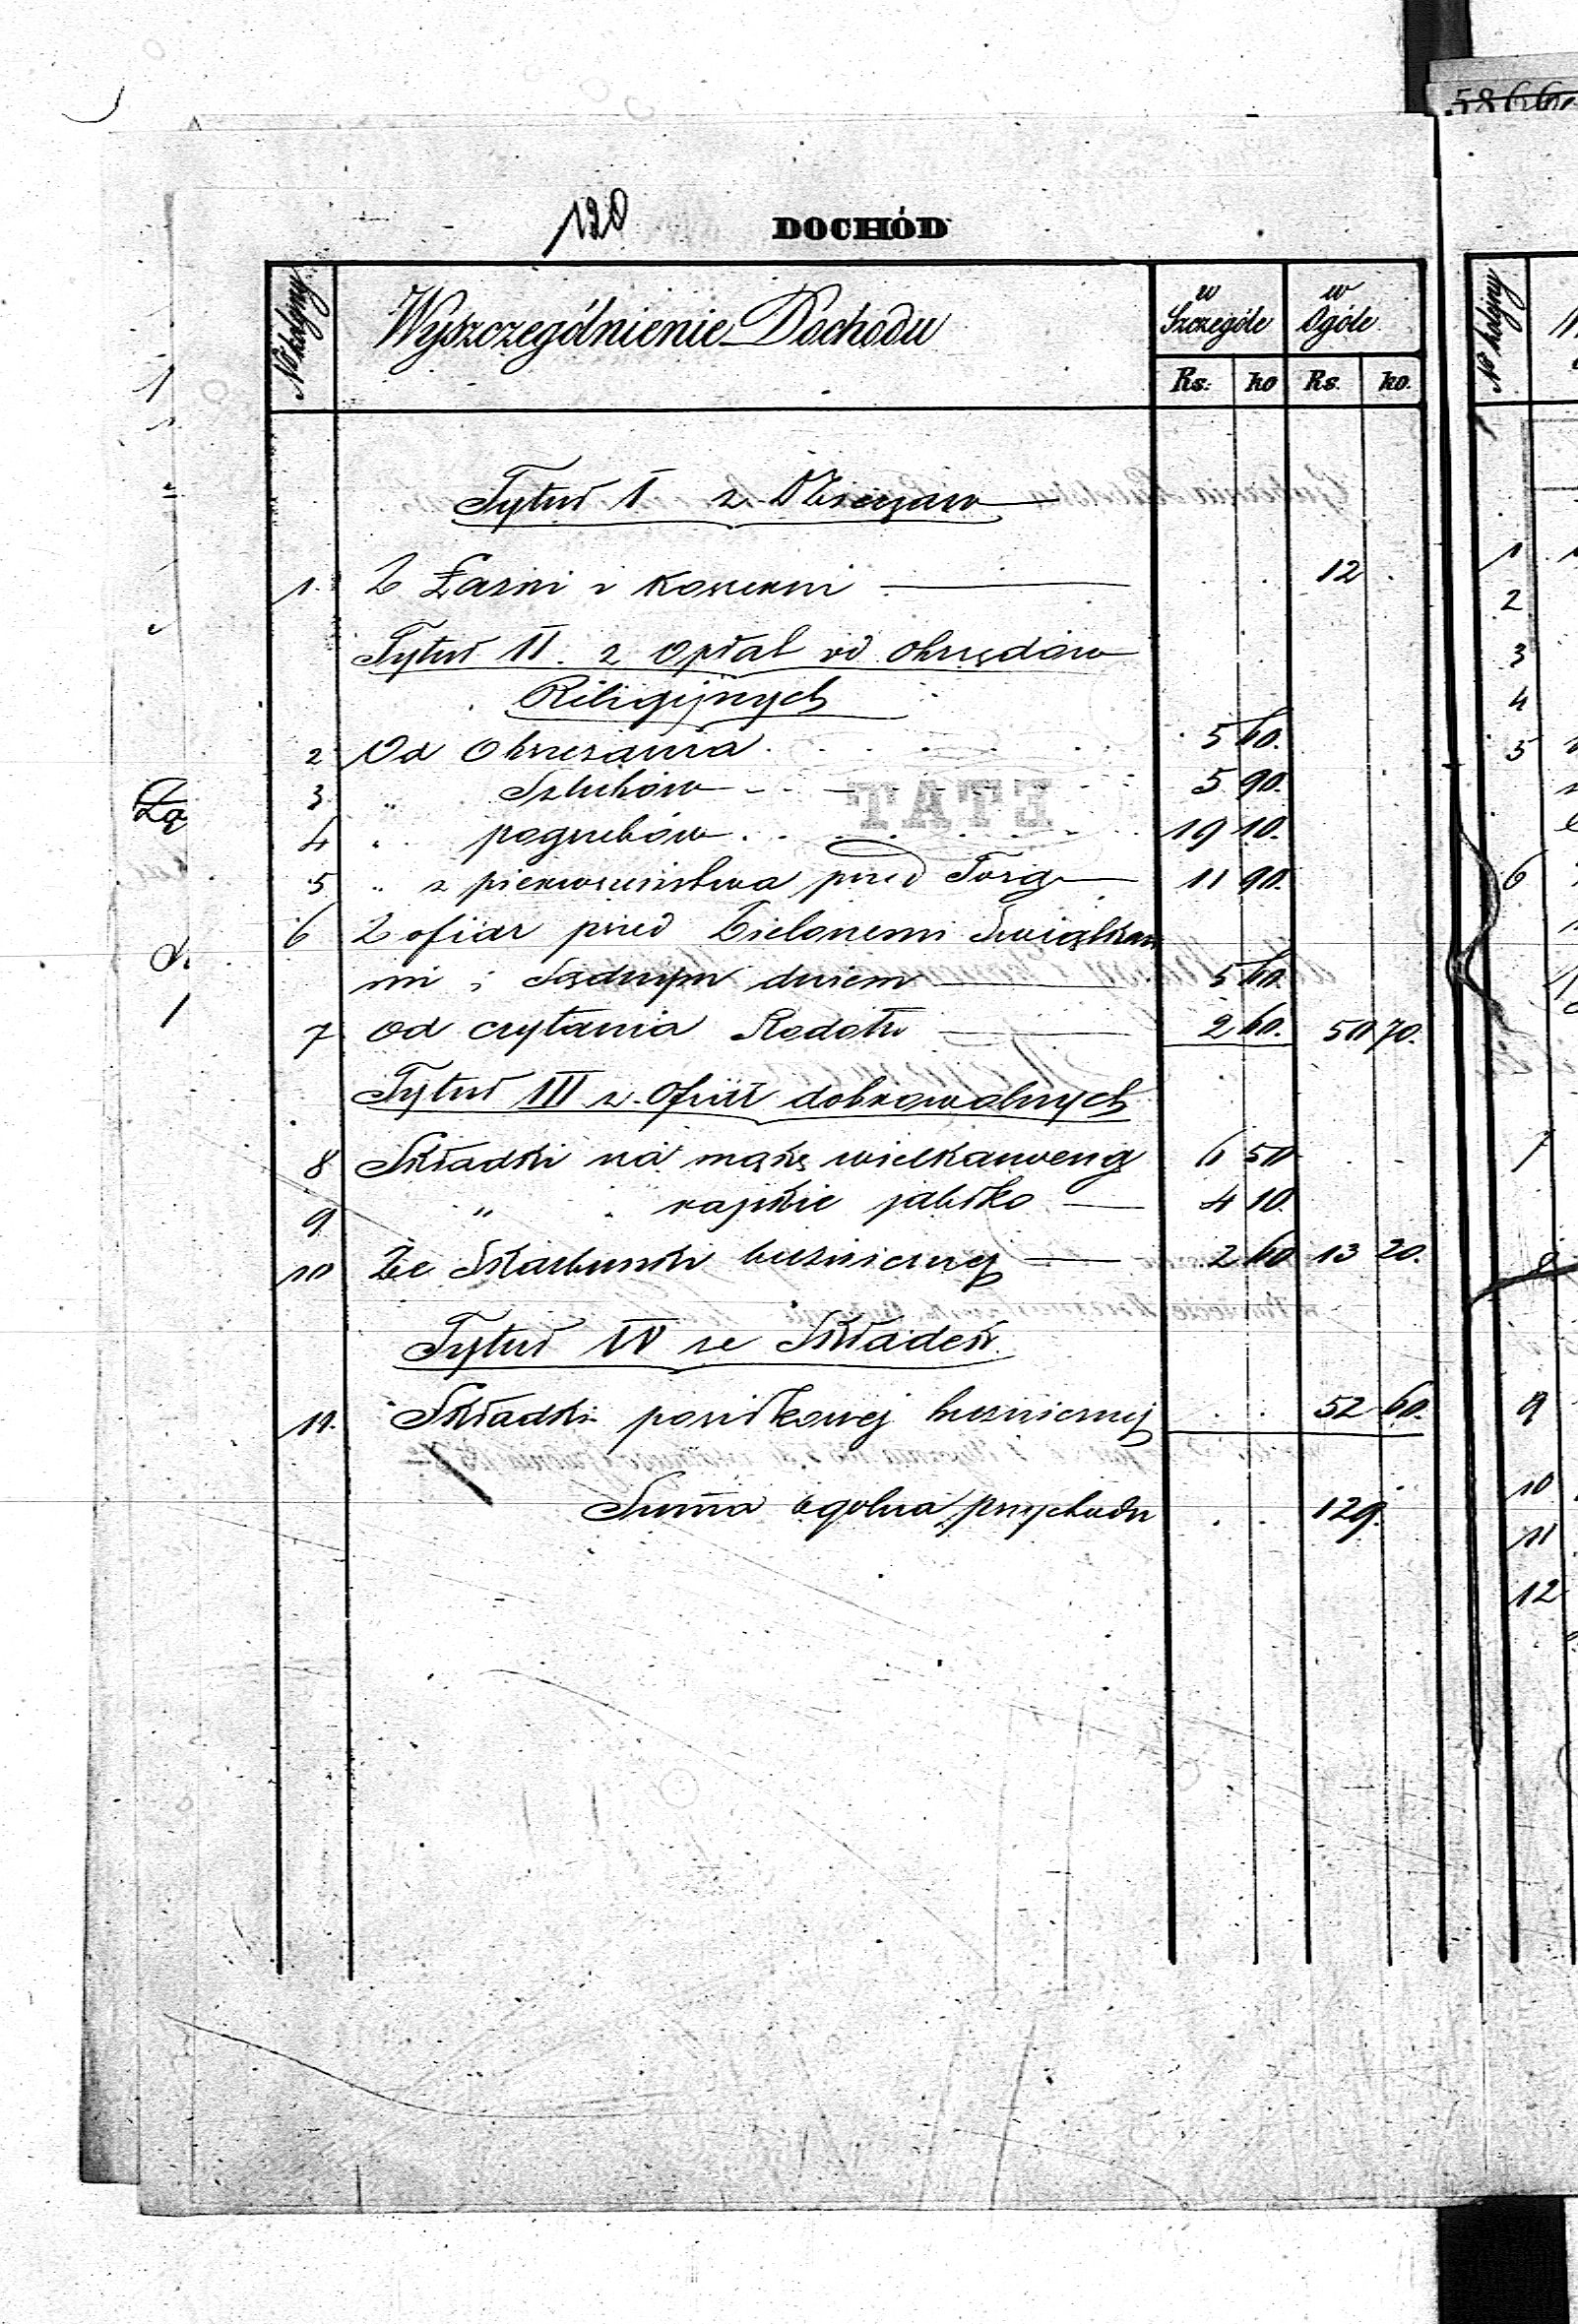 58660
120 DOCHÓD
No kolejny Wyszczególnienie Dochodu w Szczególe w Ogóle
Rs. ko Rs. ko.
Tytuł I z Dzierzaw
1. Z Łazni i Koszerni 12
Tytuł II. z Opłat od obrzędów
Religijnych
2 Od Obrzezania 5 60.
3 " Szlubów 5 90.
4 " pogrzebów 19 10.
5 " z pierwszeństwa przed Torą 11 90.
6 Z ofiar przed Zielonemi Swiątkam
mi i Sądnym dniem 5 60.
7 od czytania Rodału 2 60. 50 70.
Tytuł III z Ofiar dobrowolnych
8 Składki na mąkę wielkanocną 6 50
9 " " rajskie jabłko 4 10.
10 Ze Skarbonki bużnicznej 2 60 13 20.
Tytuł IV ze Składek
11. Składki posiłkowej bużnicznej 52 60.
Summa ogolna przychodu 129.